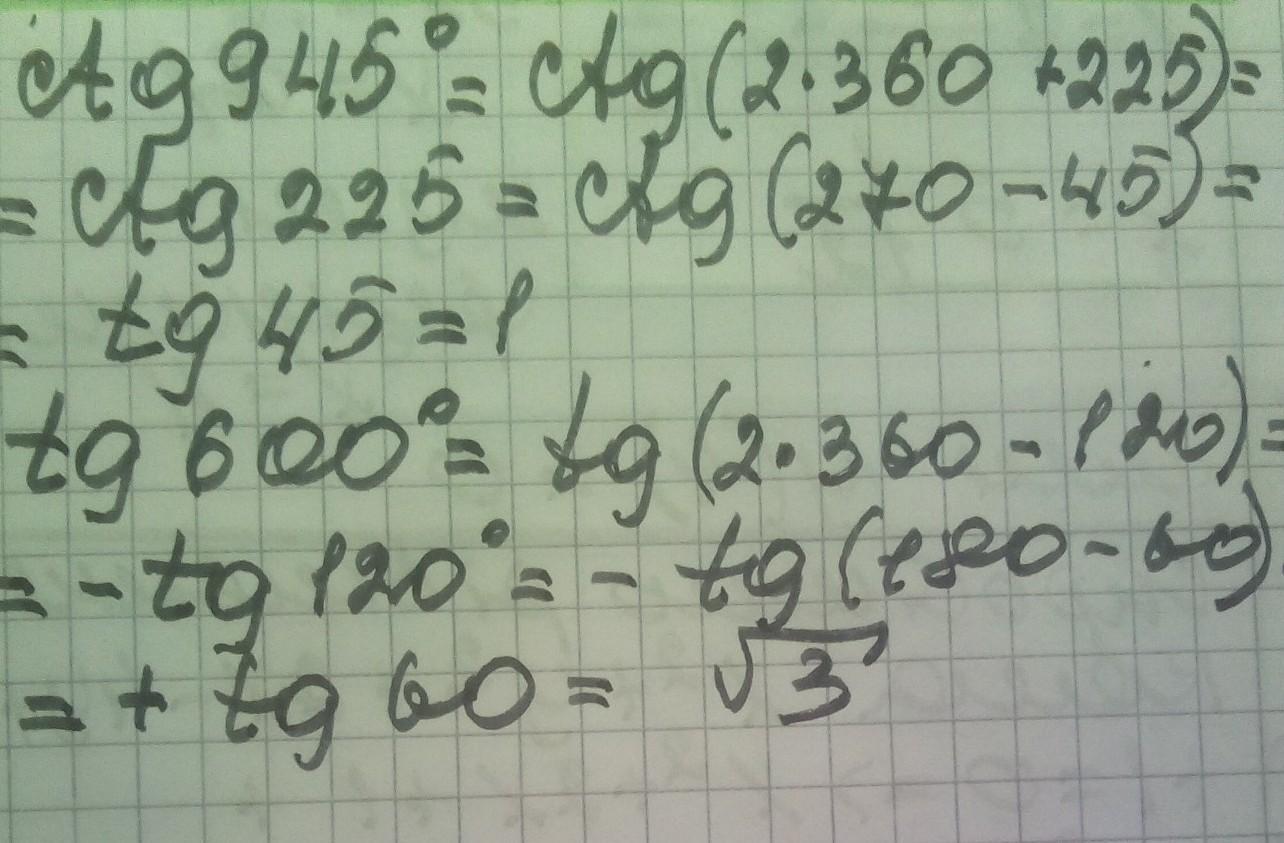 ctg 945° = ctg (2·360 +225) =
= ctg 225 = ctg (270 - 45) =
= tg 45 = 1
tg 600° = tg (2·360 - 120) =
= - tg 120° = - tg (180 - 60)
= + tg 60 = √3